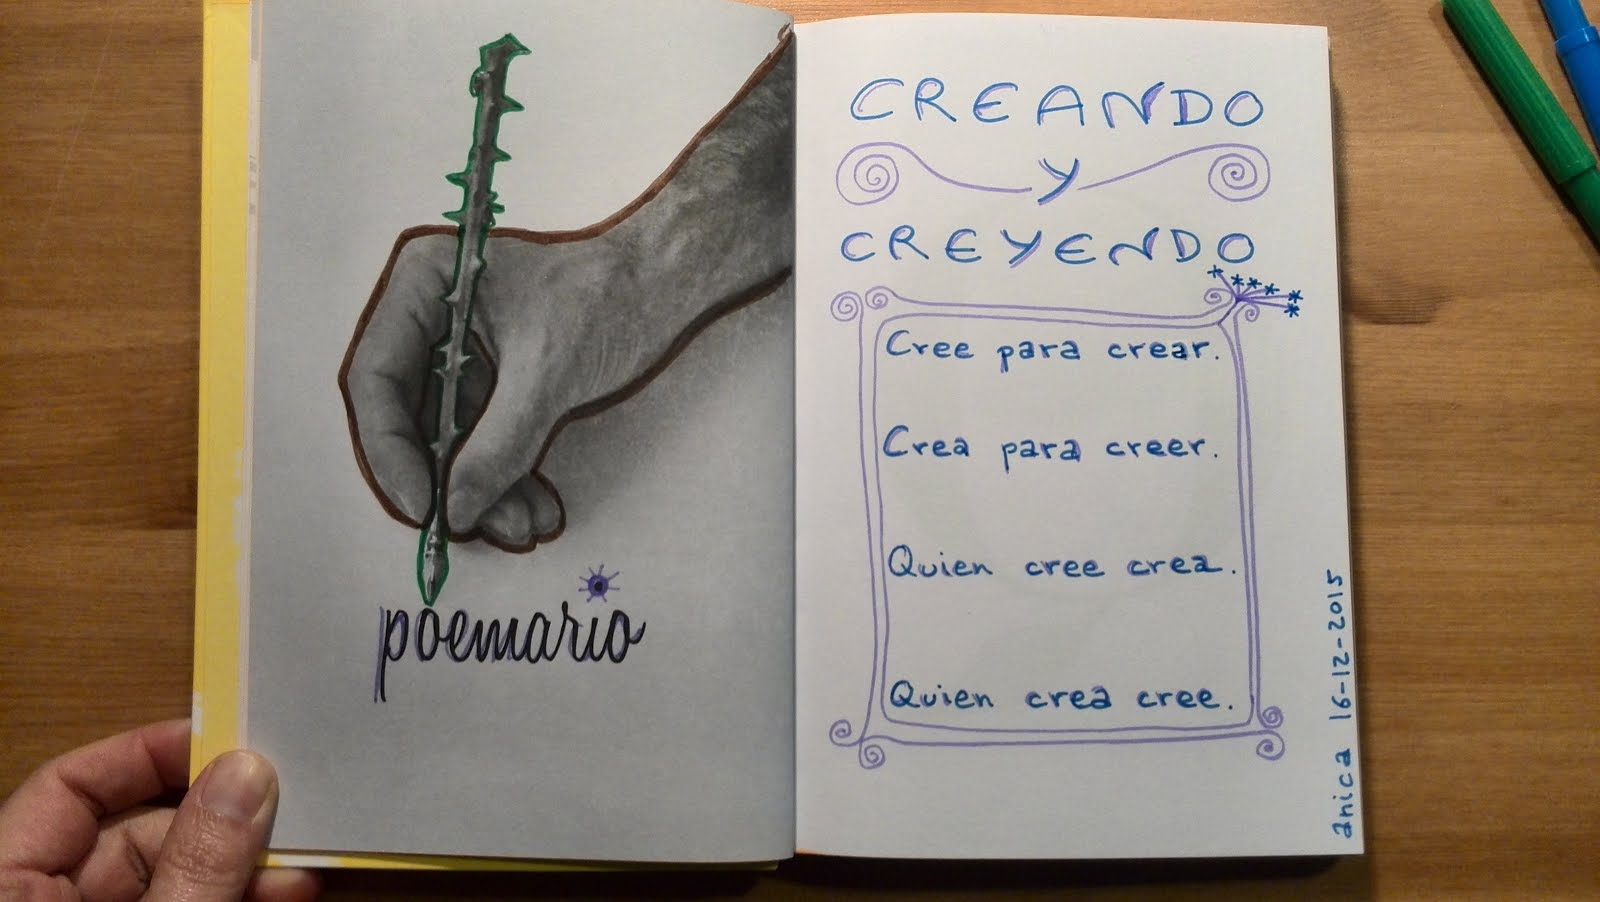 poemario
CREANDO
Y
CREYENDO
Cree para crear.
Crea para creer.
Quien cree crea.
Quien crea cree.
anica 16-12-2015